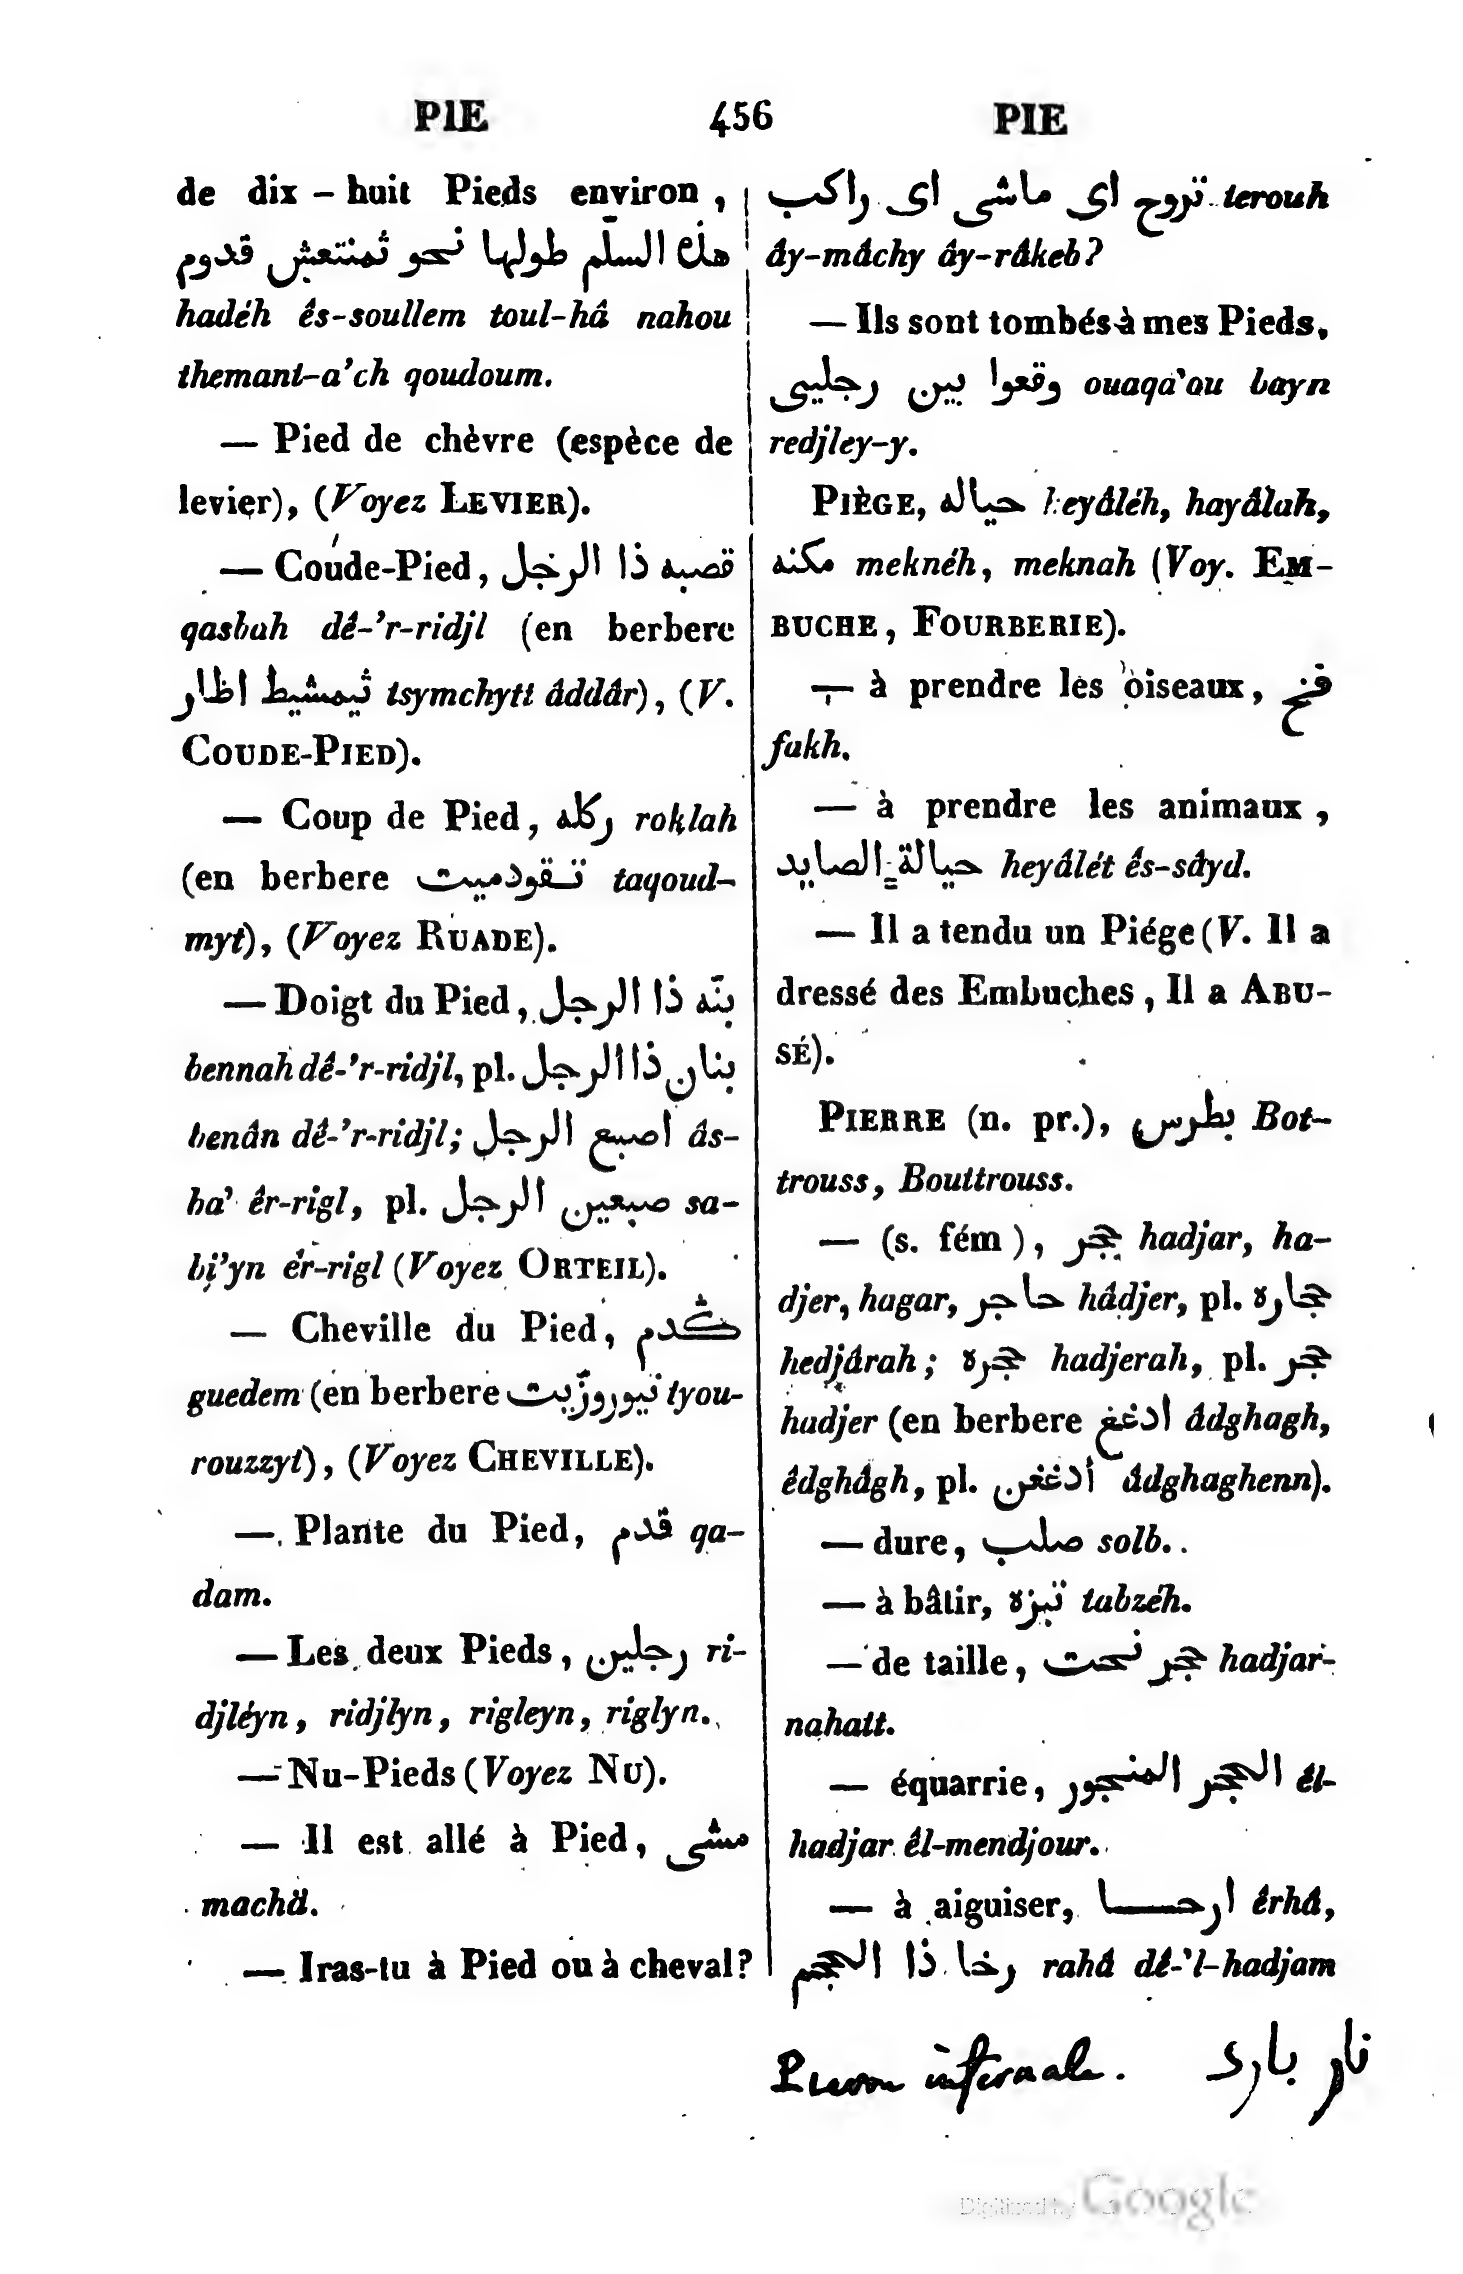 PIE 456 PIE
de dix – huit Pieds environ ,
هذه السلّم طولها نحو ثمنتعش قدوم
hadéh ês-soullem toul-hâ nahou
themant-a'ch qoudoum.
— Pied de chèvre (espèce de
levier), (Voyez LEVIER).
— Coude-Pied, قصبه ذا الرجل
qasbah dê-'r-ridjl (en berbere
ثيمشيط اظار tsymchytt âddâr), (V.
COUDE-PIED).
— Coup de Pied, ركله roklah
(en berbere تقودميت taqoud-
myt), (Voyez RUADE).
— Doigt du Pied, بنّه ذا الرجل
bennah dê-'r-ridjl, pl. بنان ذا الرجل
benân dê-'r-ridjl; اصبع الرجل âs-
ba' êr-rigl, pl. صبعين الرجل sa-
bi'yn êr-rigl (Voyez ORTEIL).
— Cheville du Pied, ڭدم
guedem (en berbere تيوروزّيت tyou-
rouzzyt), (Voyez CHEVILLE).
— Plante du Pied, قدم qa-
dam.
— Les deux Pieds, رجلين ri-
djléyn, ridjlyn, rigleyn, riglyn.
— Nu-Pieds (Voyez NU).
— Il est allé à Pied, مشى
machä.
— Iras-tu à Pied ou à cheval?
تروح اى ماشى اى راكب terouh
ây-mâchy ây-râkeb?
— Ils sont tombés à mes Pieds,
وقعوا بين رجليى ouaqa'ou bayn
redjley-y.
PIÈGE, حياله heyâléh, hayâlah,
مكنه meknéh, meknah (Voy. EM-
BUCHE, FOURBERIE).
— à prendre les oiseaux, فخ
fakh.
— à prendre les animaux ,
حيالة الصايد heyâlét ês-sâyd.
— Il a tendu un Piége (V. Il a
dressé des Embuches, Il a ABU-
SÉ).
PIERRE (n. pr.), بطرس Bot-
trouss, Bouttrouss.
— (s. fém ), حجر hadjar, ha-
djer, hagar, حاجر hâdjer, pl. حجاره
hedjârah; حجره hadjerah, pl. حجر
hadjer (en berbere ادغغ âdghagh,
êdghâgh, pl. أدغغن âdghaghenn).
— dure, صلب solb.
— à bâtir, تبزه tabzéh.
— de taille, حجر نحت hadjar-
nahatt.
— équarrie, الحجر المنجور êl-
hadjar êl-mendjour.
— à aiguiser, ارحــا êrhâ,
رخا ذا الحجم rahâ dê-'l-hadjam
Pierre infernale. نار بارى
Digitized by Google